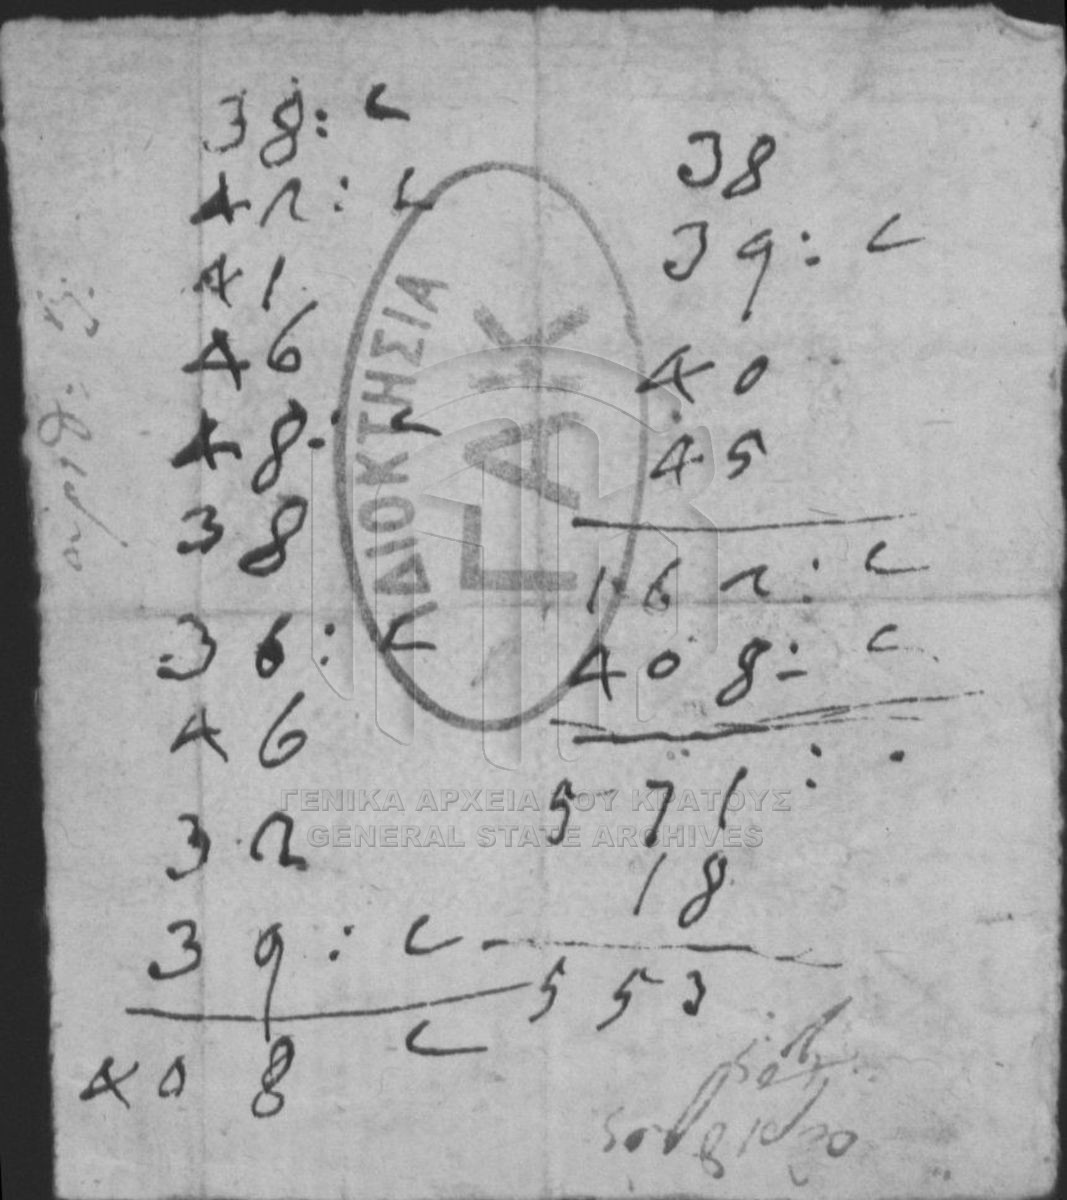 38: c
42: c
41
46
48: c
38
36: c
46
32
39: c
408 c
38
39: c
40
45
162: c
408: c
571:
18
553
ΙΔΙΟΚΤΗΣΙΑ
ΓΑΚ
ΓΕΝΙΚΑ ΑΡΧΕΙΑ ΤΟΥ ΚΡΑΤΟΥΣ
GENERAL STATE ARCHIVES